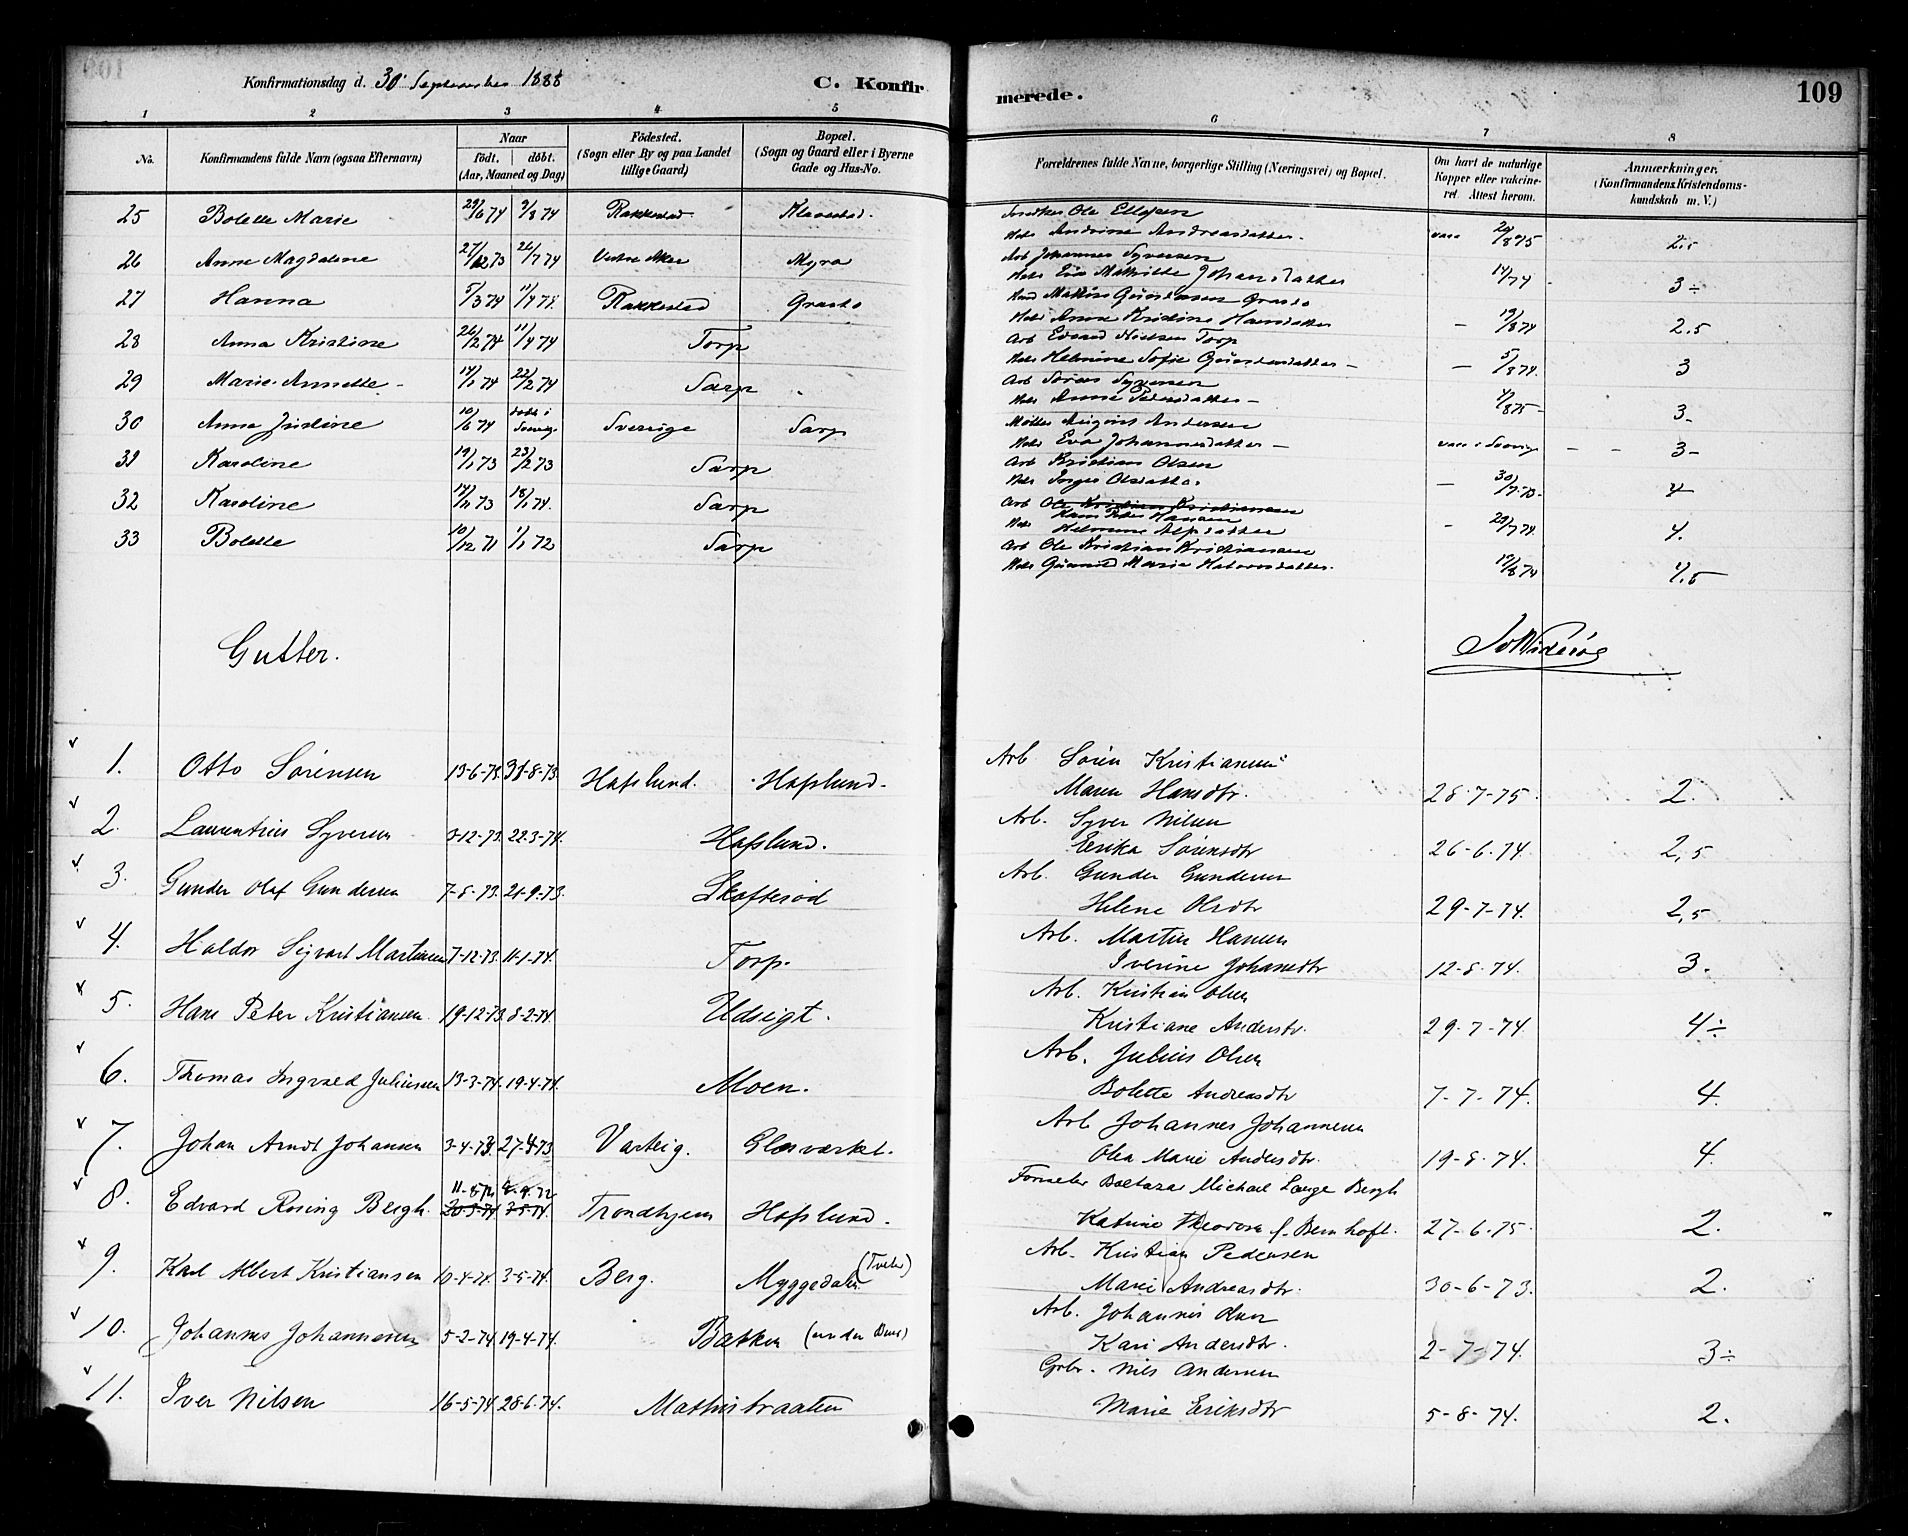 109
Konfirmationsdag d. 30 September 1888
C. Konfirmerede.
1 2 3 4 5 6 7 8
No. Konfirmandens fulde Navn (ogsaa Efternavn) Naar født. døbt. (Aar, Maaned og Dag) Fødested. (Sogn eller By og paa Landet tillige Gaard) Bopæl. (Sogn og Gaard eller i Byerne Gade og Hus-No. Forældrenes fulde Navne, borgerlige Stilling (Næringsvei) og Bopæl. Om havt de naturlige Kopper eller vakcineret. Attest herom. Anmærkninger. (Konfirmandens Kristendomskundskab m. V.)
25 Bolette Marie 29/6 74 9/8 74 Rakkestad Klavestad. Ole Ellefsen
Andrine Andreasdatter. vacc 20/8 75 2.5
26 Anne Magdalene 27/12 73 26/7 74 Vestre Aker Myra Arb Johannes Syversen
Eva Mathilde Johansdatter 14/7 74 3÷
27 Hanna 5/3 74 Rakkestad Mathias Gundersen
Anne Kristine Hansdatter – 19/8 74 2.5
28 Anna Kristine 26/2 74 11/4 74 Torp Arb Edvard Nielsen Torp
Helmine Sofie Gundersdatter – 5/8 74. 3
29 Marie Annette 14/1 74 22/2 74 Sarp Arb Søren Syversen
Anne Pedersdatter – 4/8 75 3-
30 Anna Justine 10/6 74 døbt i Sverige Sverrige Sarp Møller August Andersen
Eva Johannesdatter – vacc i Sverige 3-
31 Karoline 19/1 73 23/2 73 Sarp Arb Kristian Olsen
Olsdatter – 30/7 73. 4
32 Karoline 14/11 73 18/1 74. Sarp Arb Ole Kristian Kristiansen
Hans Peter Hansen
29/7 74. 4.
33 Bolette 10/12 71 1/1 72 Sarp Arb Ole Kristian Kristiansen
Marie Halvorsdatter. 12/8 74 4,5
Gutter.
1. Otto Sørensen 13-6-73. 31-8-73. Hafslund. Hafslund. Arb Søren Kristiansen
Maren Hansdtr. 28-7-75. 2.
2. Laurentius Syversen 3-12-73. 22-3-74. Hafslund. Arb. Syver Nilsen
Erika Sørensdtr 26-6-74. 2,5
3. Gunder Olaf Gundersen 7-8-73. 21-9-73. Skaftesød Arb. Gunder Gundersen
Helene Olsdtr 29-7-74. 2,5
4. Haldor Sigvart Martinsen 7-12-73. 11-1-74. Torp. Arb. Martin Hansen
Iverine Johansdtr 12-8-74. 3.
5. Hans Peter Kristiansen 19-12-73. 8-2-74 Udsigt. Arb. Kristian Olsen
Kristiane Andersdtr. 29-7-74. 4÷
6. Thomas Ingvald Juliussen 13-3-74. 19-4-74. Moen. Arb. Julius Olsen
Bolette Andreasdtr 7-7-74. 4.
7. Johan Arndt Johansen 3-4-73. 27-4-73 Varteig. Glasværket. Arb Johannes Johannesen
Olea Marie Andersdtr. 19-8-74. 4.
8. Edvard Rosing Bergh. 20-3-74 3-5-74. Trondhjem Hafslund. Forvalter Baltazar Michael Lange Bergh
Katrine Theodora f. Bernhoft. 27-6-75. 2.
9. Karl Albert Kristiansen 10-4-74. 3-5-74. Berg. Myggedalen (Tveter) Arb. Kristian Pedersen
Marie Andreasdtr. 30-6-73. 2.
10. Johannes Johannesen 5-2-74. 19-4-74. Bakken Arb. Johannes Olsen
Kari Andersdtr. 2-7-74. 3÷
11. Iver Nilsen 16-5-74. 28-6-74. Mathisbraaten Grbr. Nils Andersen
Marie Eriksdtr 5-8-74. 2.